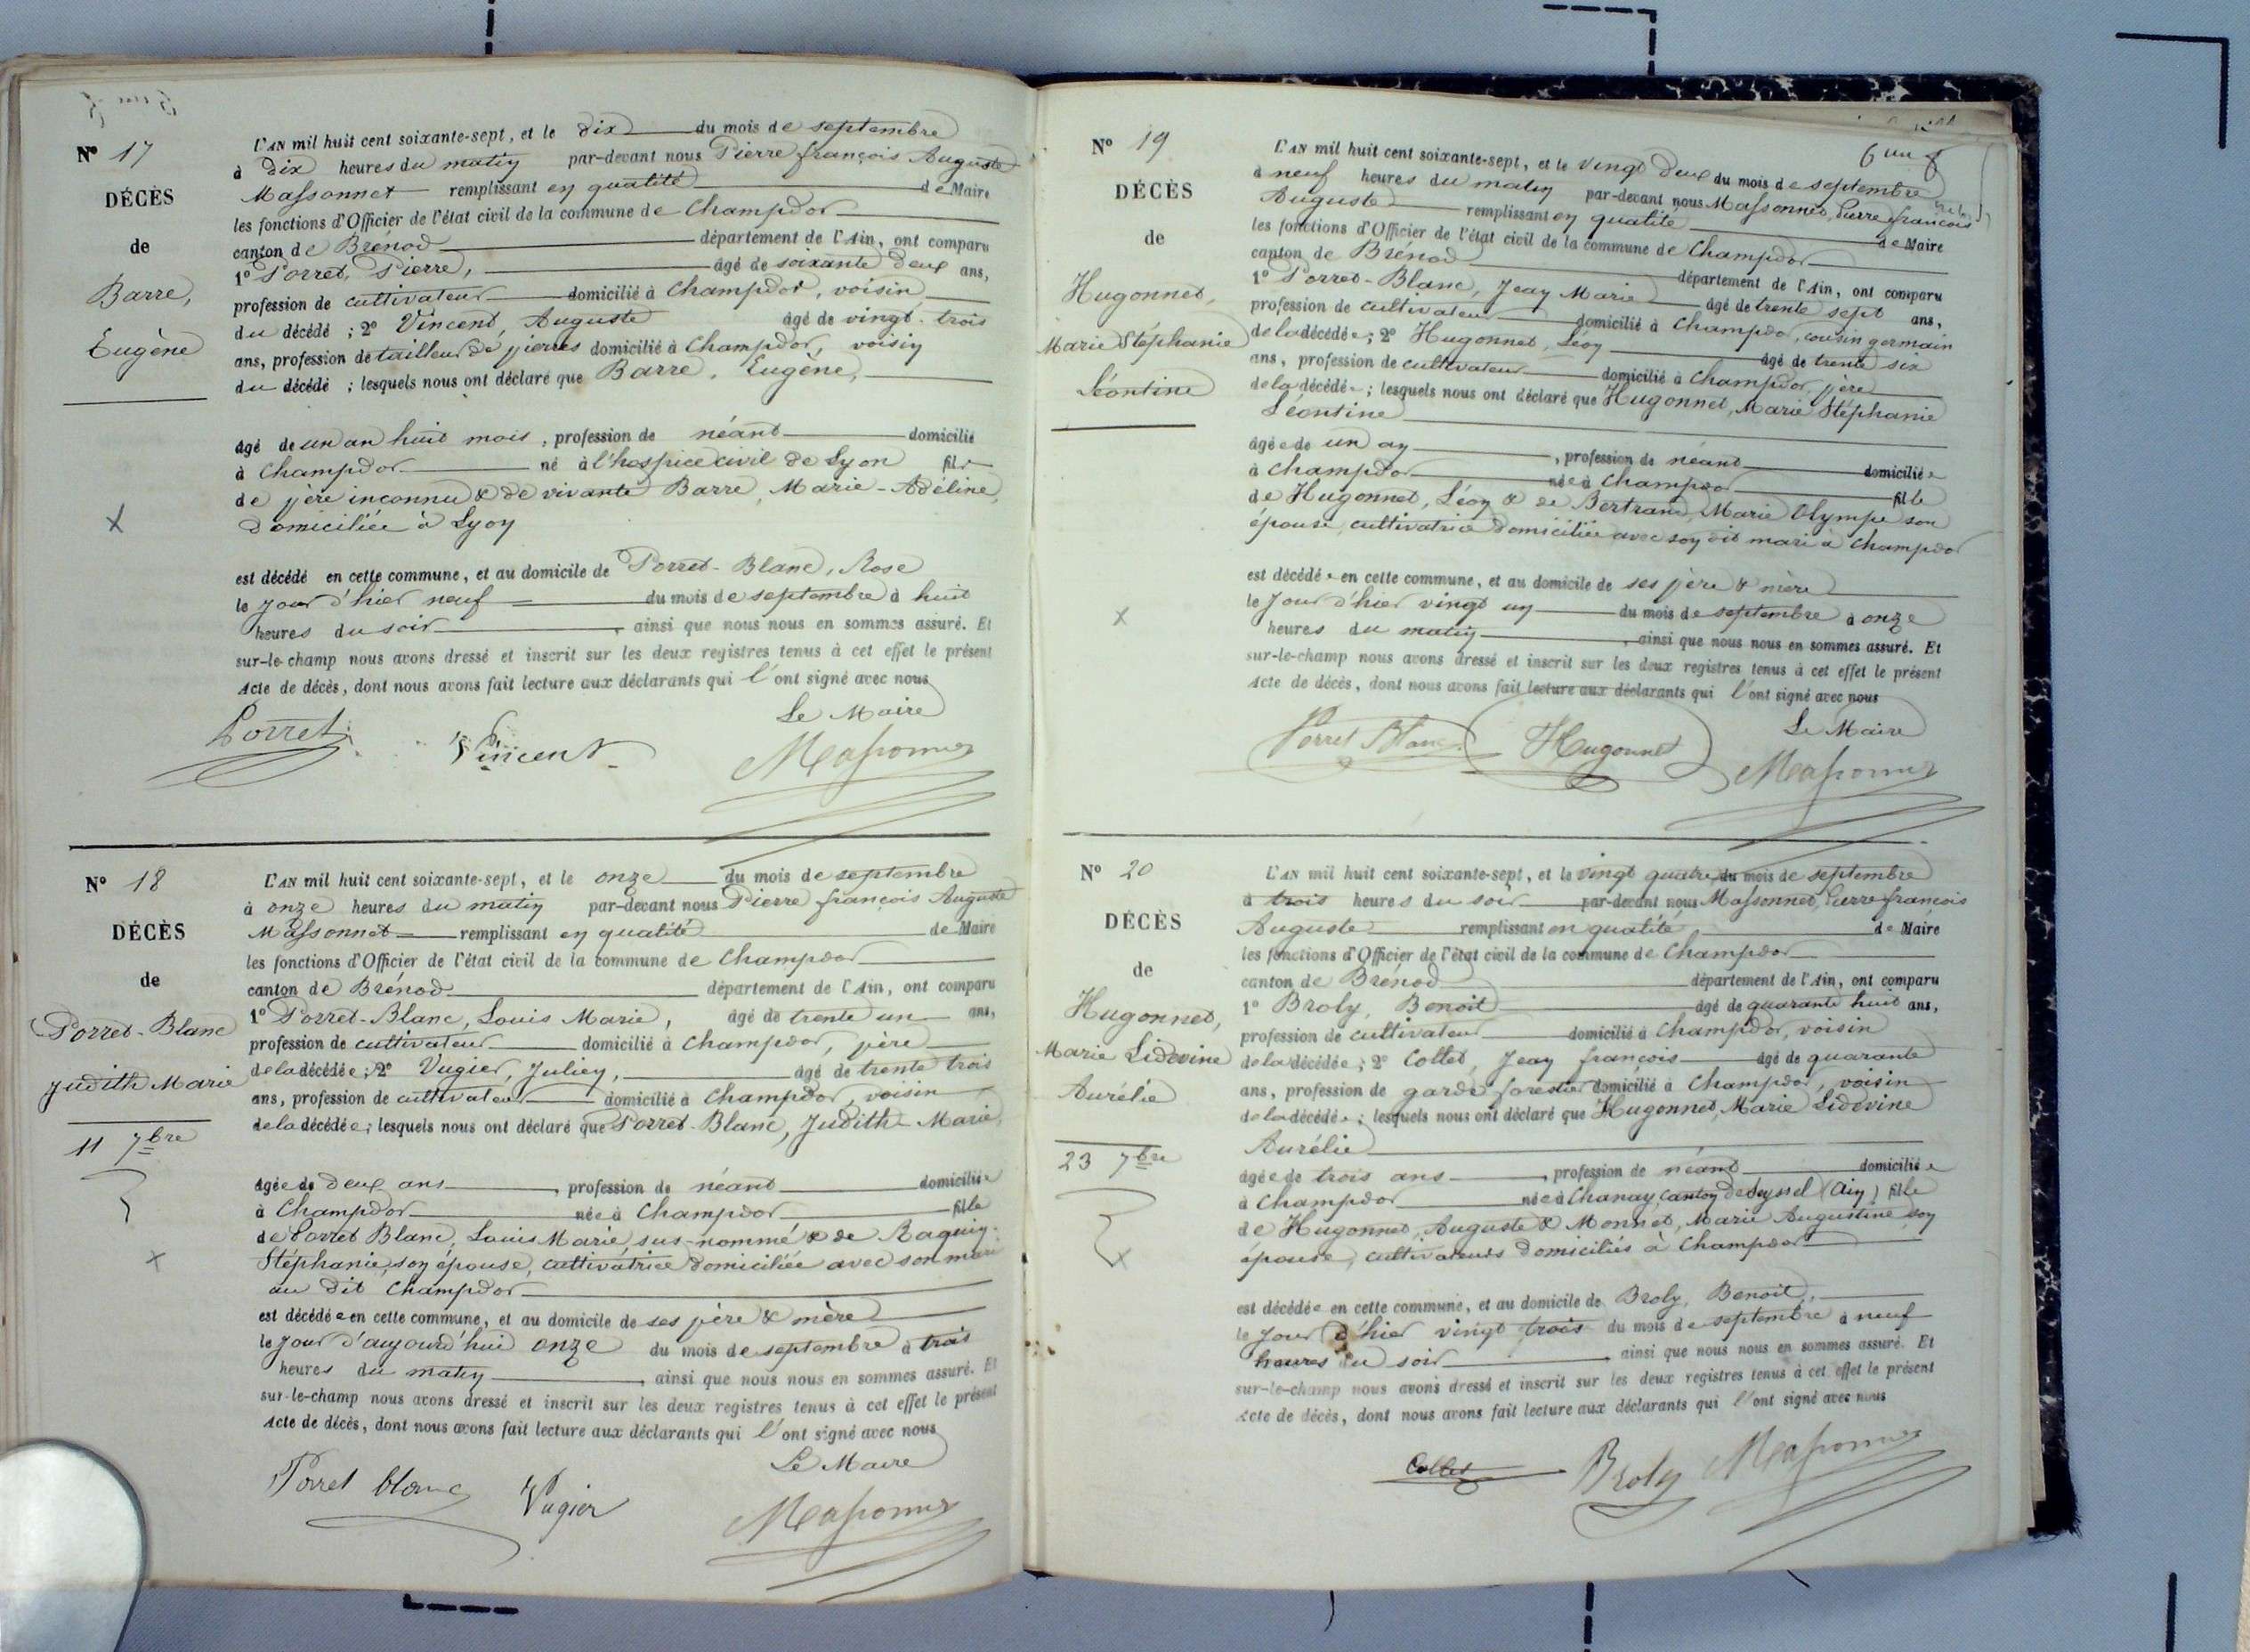 Nº 17
DÉCÈS
de
Barre,
Eugène
L'AN mil huit cent soixante-sept, et le dix du mois de septembre
à dix heures du matin par-devant nous Pierre françois Auguste
Massonnet remplissant en qualité de Maire
les fonctions d'Officier de l'état civil de la commune de Champdor
canton de Brénod département de l'Ain, ont comparu
1º Porret, Pierre, âgé de soixante deux ans,
profession de cultivateur domicilié à Champdor, voisin
du décédé ; 2º Vincent, Auguste âgé de vingt-trois
ans, profession de tailleur de pierres domicilié à Champdor, voisin
du décédé ; lesquels nous ont déclaré que Barre, Eugène,
âgé de un an huit mois, profession de néant domicilié
à Champdor né à l'hospice civil de Lyon fils
de père inconnu & de vivante Barre, Marie-Adéline,
Domiciliée à Lyon
est décédé en cette commune, et au domicile de Porret-Blanc, Rose
le jour d'hier neuf du mois de septembre à huit
heures du soir, ainsi que nous nous en sommes assuré. Et
sur-le-champ nous avons dressé et inscrit sur les deux registres tenus à cet effet le présent
Acte de décès, dont nous avons fait lecture aux déclarants qui l'ont signé avec nous
Le Maire
Porret Vincent Massonnet
Nº 18
DÉCÈS
de
Porret-Blanc
Judith Marie
11 7bre
L'AN mil huit cent soixante-sept, et le onze du mois de septembre
à onze heures du matin par-devant nous Pierre françois Auguste
Massonnet remplissant en qualité de Maire
les fonctions d'Officier de l'état civil de la commune de Champdor
canton de Brénod département de l'Ain, ont comparu
1º Porret-Blanc, Louis Marie, âgé de trente un ans,
profession de cultivateur domicilié à Champdor, père
de la décédée ; 2º Vugier, Julien, âgé de trente trois
ans, profession de cultivateur domicilié à Champdor, voisin
de la décédée ; lesquels nous ont déclaré que Porret-Blanc, Judith Marie,
âgée de deux ans, profession de néant domiciliée
à Champdor née à Champdor fille
de Porret Blanc, Louis Marie sus-nommé & de Raquin
Stéphanie, son épouse, cultivatrice domiciliée avec son mari
au dit Champdor
est décédée en cette commune, et au domicile de ses père & mère
le jour d'aujourd'hui onze du mois de septembre à trois
heures du matin, ainsi que nous nous en sommes assuré. Et
sur-le-champ nous avons dressé et inscrit sur les deux registres tenus à cet effet le présent
Acte de décès, dont nous avons fait lecture aux déclarants qui l'ont signé avec nous
Le Maire
Porret blanc Vugier Massonnet
Nº 19
DÉCÈS
de
Hugonnet,
Marie Stéphanie
Léontine
L'AN mil huit cent soixante-sept, et le vingt deux du mois de septembre
à neuf heures du matin par-devant nous Massonnet, Pierre françois
Auguste remplissant en qualité de Maire
les fonctions d'Officier de l'état civil de la commune de Champdor
canton de Brénod département de l'Ain, ont comparu
1º Porret-Blanc, Jean Marie âgé de trente sept ans,
profession de cultivateur domicilié à Champdor, cousin germain
de la décédée ; 2º Hugonnet, Léon âgé de trente six
ans, profession de cultivateur domicilié à Champdor, père
de la décédée ; lesquels nous ont déclaré que Hugonnet, Marie Stéphanie
Léontine
âgée de un an, profession de néant domiciliée
à Champdor née à Champdor fille
de Hugonnet, Léon & de Bertrand, Marie Olympe son
épouse, cultivatrice domiciliée avec son dit mari à Champdor
est décédée en cette commune, et au domicile de ses père & mère
le jour d'hier vingt un du mois de septembre à onze
heures du matin, ainsi que nous nous en sommes assuré. Et
sur-le-champ nous avons dressé et inscrit sur les deux registres tenus à cet effet le présent
Acte de décès, dont nous avons fait lecture aux déclarants qui l'ont signé avec nous
Le Maire
Porret Blanc Hugonnet Massonnet
Nº 20
DÉCÈS
de
Hugonnet,
Marie Lidevine
Aurélie
23 7bre
L'AN mil huit cent soixante-sept, et le vingt quatre du mois de septembre
à trois heures du soir par-devant nous Massonnet, Pierre françois
Auguste remplissant en qualité de Maire
les fonctions d'Officier de l'état civil de la commune de Champdor
canton de Brénod département de l'Ain, ont comparu
1º Broly, Benoit âgé de quarante huit ans,
profession de cultivateur domicilié à Champdor, voisin
de la décédée ; 2º Collet, Jean françois âgé de quarante
ans, profession de garde forestier domicilié à Champdor, voisin
de la décédée ; lesquels nous ont déclaré que Hugonnet, Marie Lidevine
Aurélie
âgée de trois ans, profession de néant domiciliée
à Champdor née à Chanay, canton de Seyssel (Ain) fille
de Hugonnet, Auguste & Monnet, Marie Augustine son
épouse, cultivateurs domiciliés à Champdor
est décédée en cette commune, et au domicile de Broly, Benoit,
le jour d'hier vingt trois du mois de septembre à neuf
heures du soir, ainsi que nous nous en sommes assuré. Et
sur-le-champ nous avons dressé et inscrit sur les deux registres tenus à cet effet le présent
Acte de décès, dont nous avons fait lecture aux déclarants qui l'ont signé avec nous
Collet Broly Massonnet